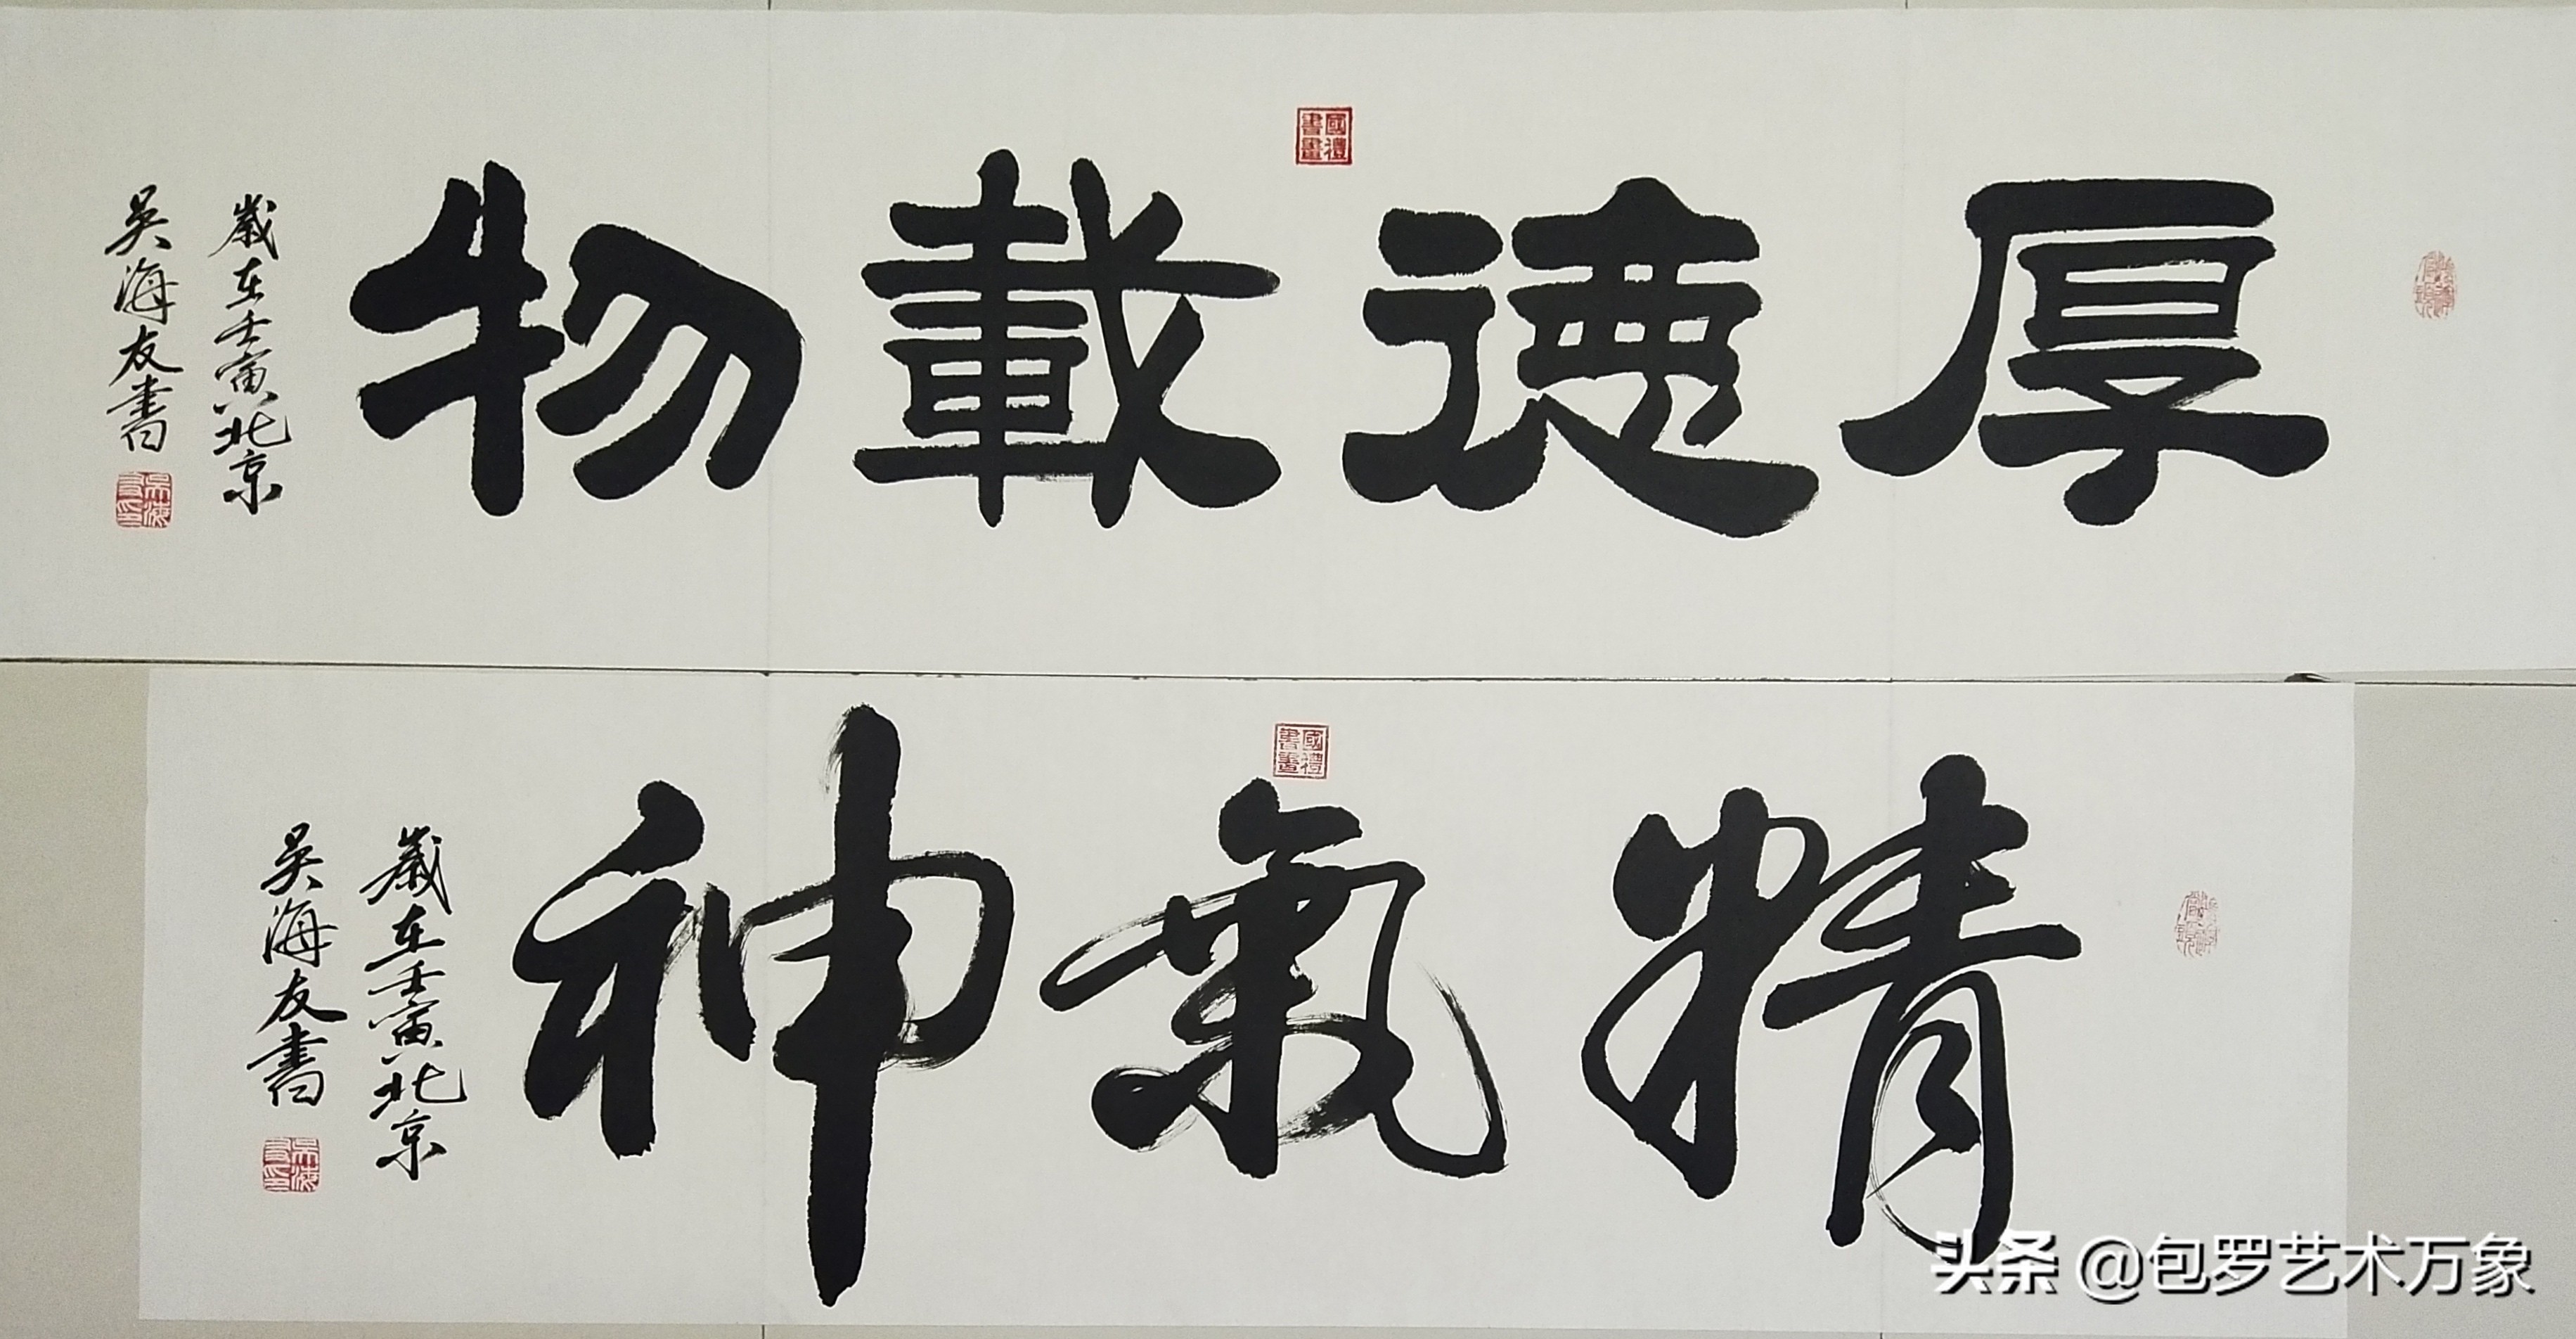 厚德載物
歲在壬寅北京
吳海友書
國禮書畫
精氣神
歲在壬寅北京
吳海友書
國禮書畫
头条 @包罗艺术万象